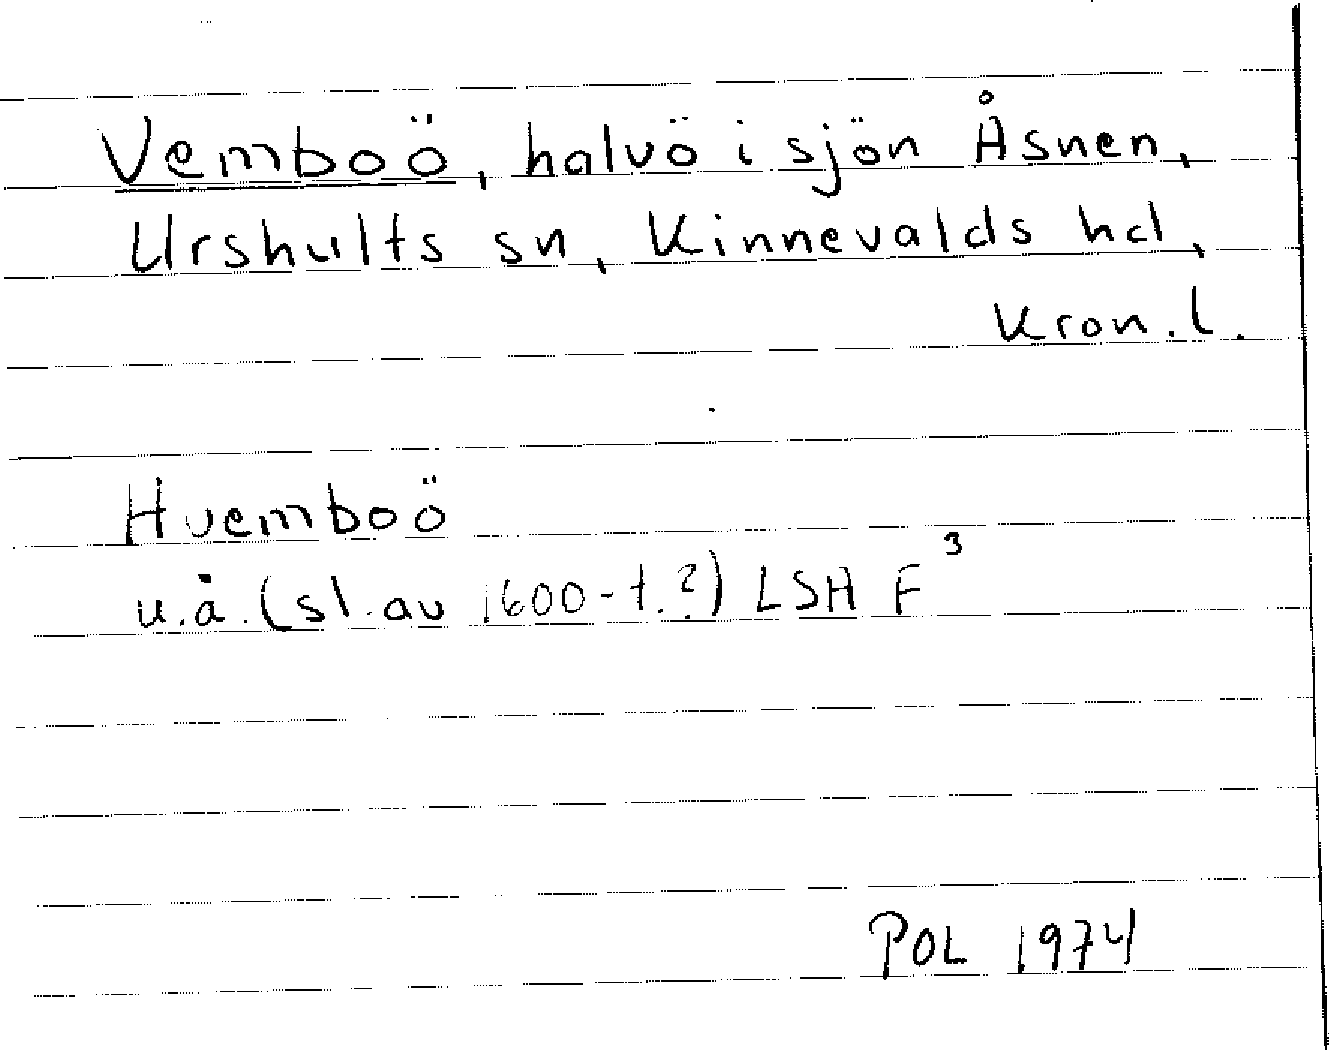 Vemboö, halvö i sjön Åsnen,
Urshults sn, Kinnevalds hd,
Kron. l.
Hvemboö
u.å. (sl. av 1600-t.?) LSH F³
POL 1974